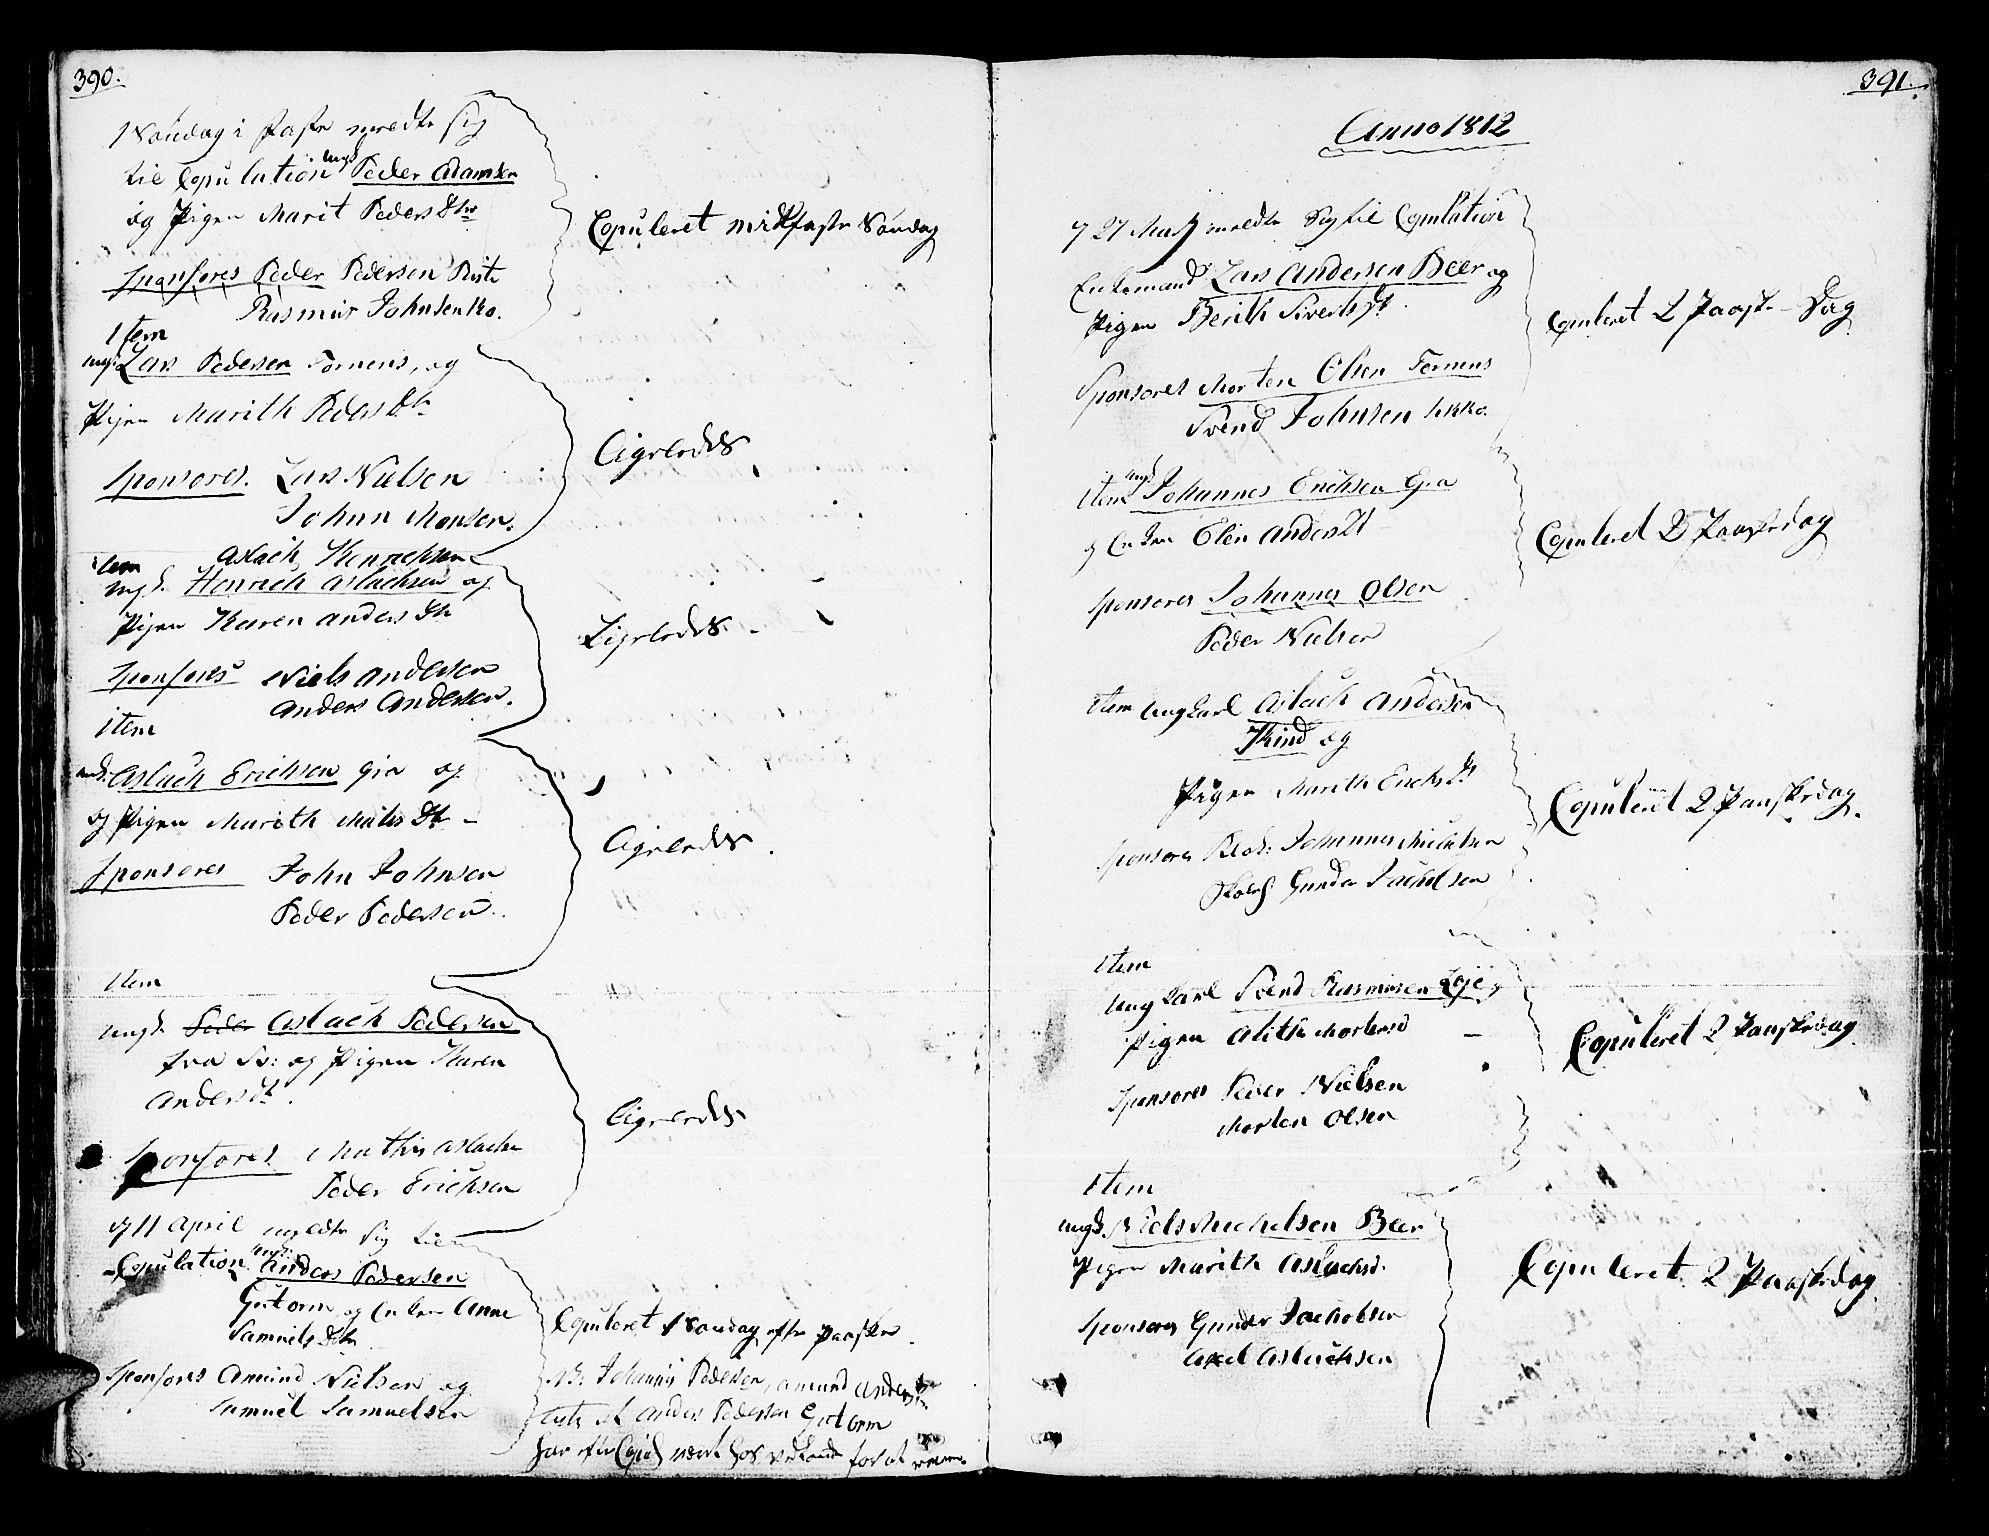 390.
1 Söndag i Faste meldte sig
til Copulation ungk Peder Adamsen
og Pigen Marit Peders Dtr
Copuleret midfaste Söndag
Sponsores Peder Pedersen
Rasmus Johnsen
Item
ungk. Lars Pedersen Tornens, og
Pigen Marith Peders Dtr
Ligeledes
Sponsores. Lars Nielsen
John Monsen.
Aslach Henrichsen
Item
ungk. Henrich Aslachsen og
Pigen Karen Anders Dtr
Ligeledes.
Sponsores Niels Andersen
Anders Andersen.
Item
ungk. Aslach Erichsen og
og Pigen Marith Mathis Dtr
Ligeledes.
Sponsores John Johnsen
Peder Pedersen.
Item
ungk. Peder Aslach Pedersen
fra og Pigen Karen
Anders Dt.
Ligeledes
Sponsores Mathis Aslachs
Peder Erichsen
d 11 April meldte sig til
Copulation ungk. Anders Pedersen
Gutorm og Enken Anne
Samuels Dtr
Copuleret 1 Söndag efter Paaske.
Sponsores Amund Nielsen og
Samuel Samuelsen
NB. Johannis Pedersen, Amund Anders
at Anders Pedersen Gutorm
har været hos for at
391.
Anno 1812
d 27 Marts meldte Sig til Copulation
Enkemand Lars Andersen Beer og
Pigen Berith Siverts Dt.
Copuleret 2 Paaske-Dag
Sponsores Morten Olsen Tornens
Svend Johnsen
Item ungk Johannes Erichsen
og Enken Elen Anders Dt
Copuleret 2 Paaskedag
Sponsores Johannes Olsen
Peder Nielsen
Item Ungkarl Aslach Andersen
Kind og
Pigen Marith Erichs Dt
Copuleret 2 Paaskedag.
Sponsores Johannes Michelsen
Gunder Jachelsen
Item
Ungkarl Svend Rasmusen Leje og
Pigen Alith Mortensd
Copuleret 2 Paaskedag
Sponsores Peder Nielsen
Morten Olsen
Item
ungk. Niels Michelsen Beer
Pigen Marith Aslachsd.
Copuleret 2 Paaskedag
Sponsores Gunder Jachobsen
Axel Aslachsen